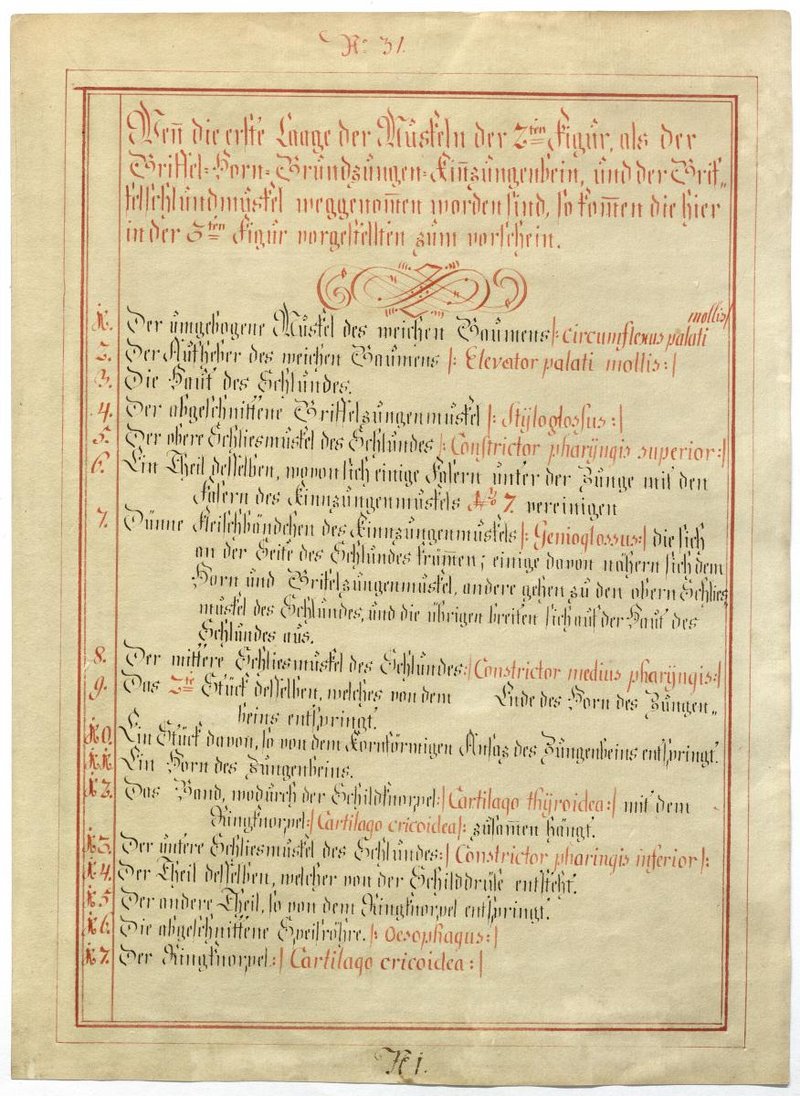 No 31.
Wen̄ die erste Laage der Muskeln der 2ten Figur, als der
Griffel= Horn= Grundzungen= Kin̄zungenbein, und der Grif„
felschlundmuskel weggenom̄en worden sind, so kom̄en die hier
in der 3ten Figur vorgestellten zum vorschein.
1. Der umgebogene Muskel des weichen Gaumens |: circumflexus palati mollis
2. Der Aufheber des weichen Gaumens |: Elevator palati mollis :|
3. Die Haut des Schlundes.
4. Der abgeschnittene Griffelzungenmuskel |: Stÿloglossus :|
5. Der obere Schliesmuskel des Schlundes |: Constrictor pharÿngis superior :|
6. Ein Theil desselben, wovon sich einige Fasern unter der Zunge mit den
Fasern des Kinnzungenmuskels No 7. vereinigen
7. Dünne Fleischbändchen des Kinnzungenmuskels |: Genioglossus :| die sich
an der Seite des Schlundes krüm̄en; einige davon nähern sich dem
Horn und Grifelzungenmuskel, andere gehen zu den obern Schlies
muskel des Schlundes, und die übrigen breiten sich auf der Haut des
Schlundes aus.
8. Der mittere Schliesmuskel des Schlundes :| Constrictor medius pharÿngis :|
9. Das 2te Stück desselben, welches von dem Ende des Horn des Zungen„
beins entspringt.
10. Ein Stück davon, so von dem Kornförmigen Ansaz des Zungenbeins entspringt.
11. Ein Horn des Zungenbeins.
12. Das Band, wodurch der Schildknorpel :| Cartilago thÿroidea :| mit dem
Ringknorpel :| Cartilago cricoidea |: zusam̄en hängt.
13. Der untere Schliesmuskel des Schlundes :| Constrictor pharingis inferior |:
14. Der Theil desselben, welcher von der Schilddrüse entsteht.
15. Der andere Theil, so von dem Ringknorpel entspringt.
16. Die abgeschnittene Speisröhre. |: Oesophagus :|
17. Der Ringknorpel :| Cartilago cricoidea :|